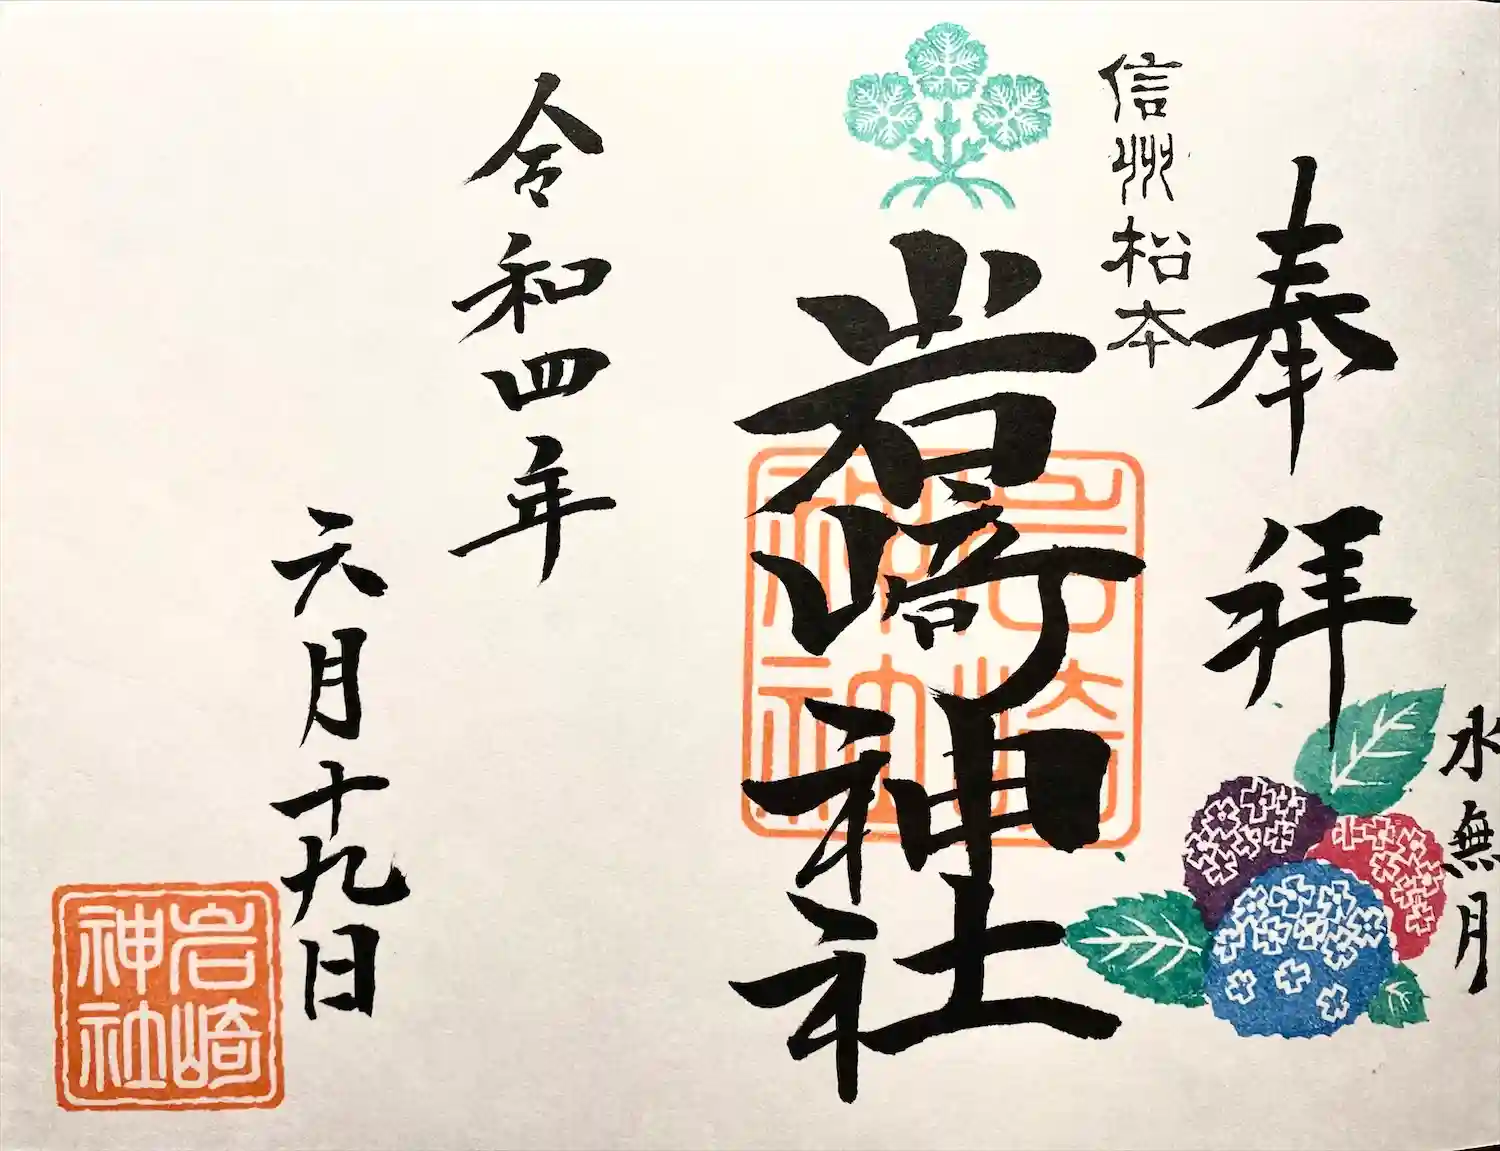 奉拝
水無月
信州松本
岩崎神社
岩崎神社
令和四年
六月十九日
岩崎神社